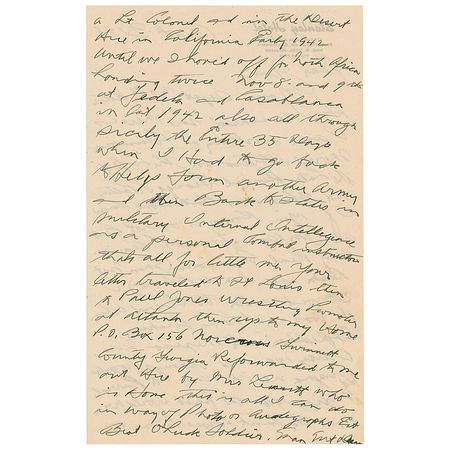 a Lt Colonel and in the Desert
Hire in California Early 1942
Until we shoved off for North Africa
Landing twice Nov 8. and 9th
at Fedela and Casablanca
in Oct 1942 also all through
Sicily the Entire 35 Days
when I Had to go back
to Help form another Army
and then Back to States in
military Internal Intellegence
as a personal Combat instructor
thats all for little me. Your
letter traveled to St Louis then
to Paul Jones wrestling Promoter
at atlanta then up to my Home
P.O. Box 156 Norcross Gwinnett
County Georgia Reforwarded to me
out Hire by Mrs who
is Home this is all I can do
in way of Photo or Autographs
Best O Luck Soldier.